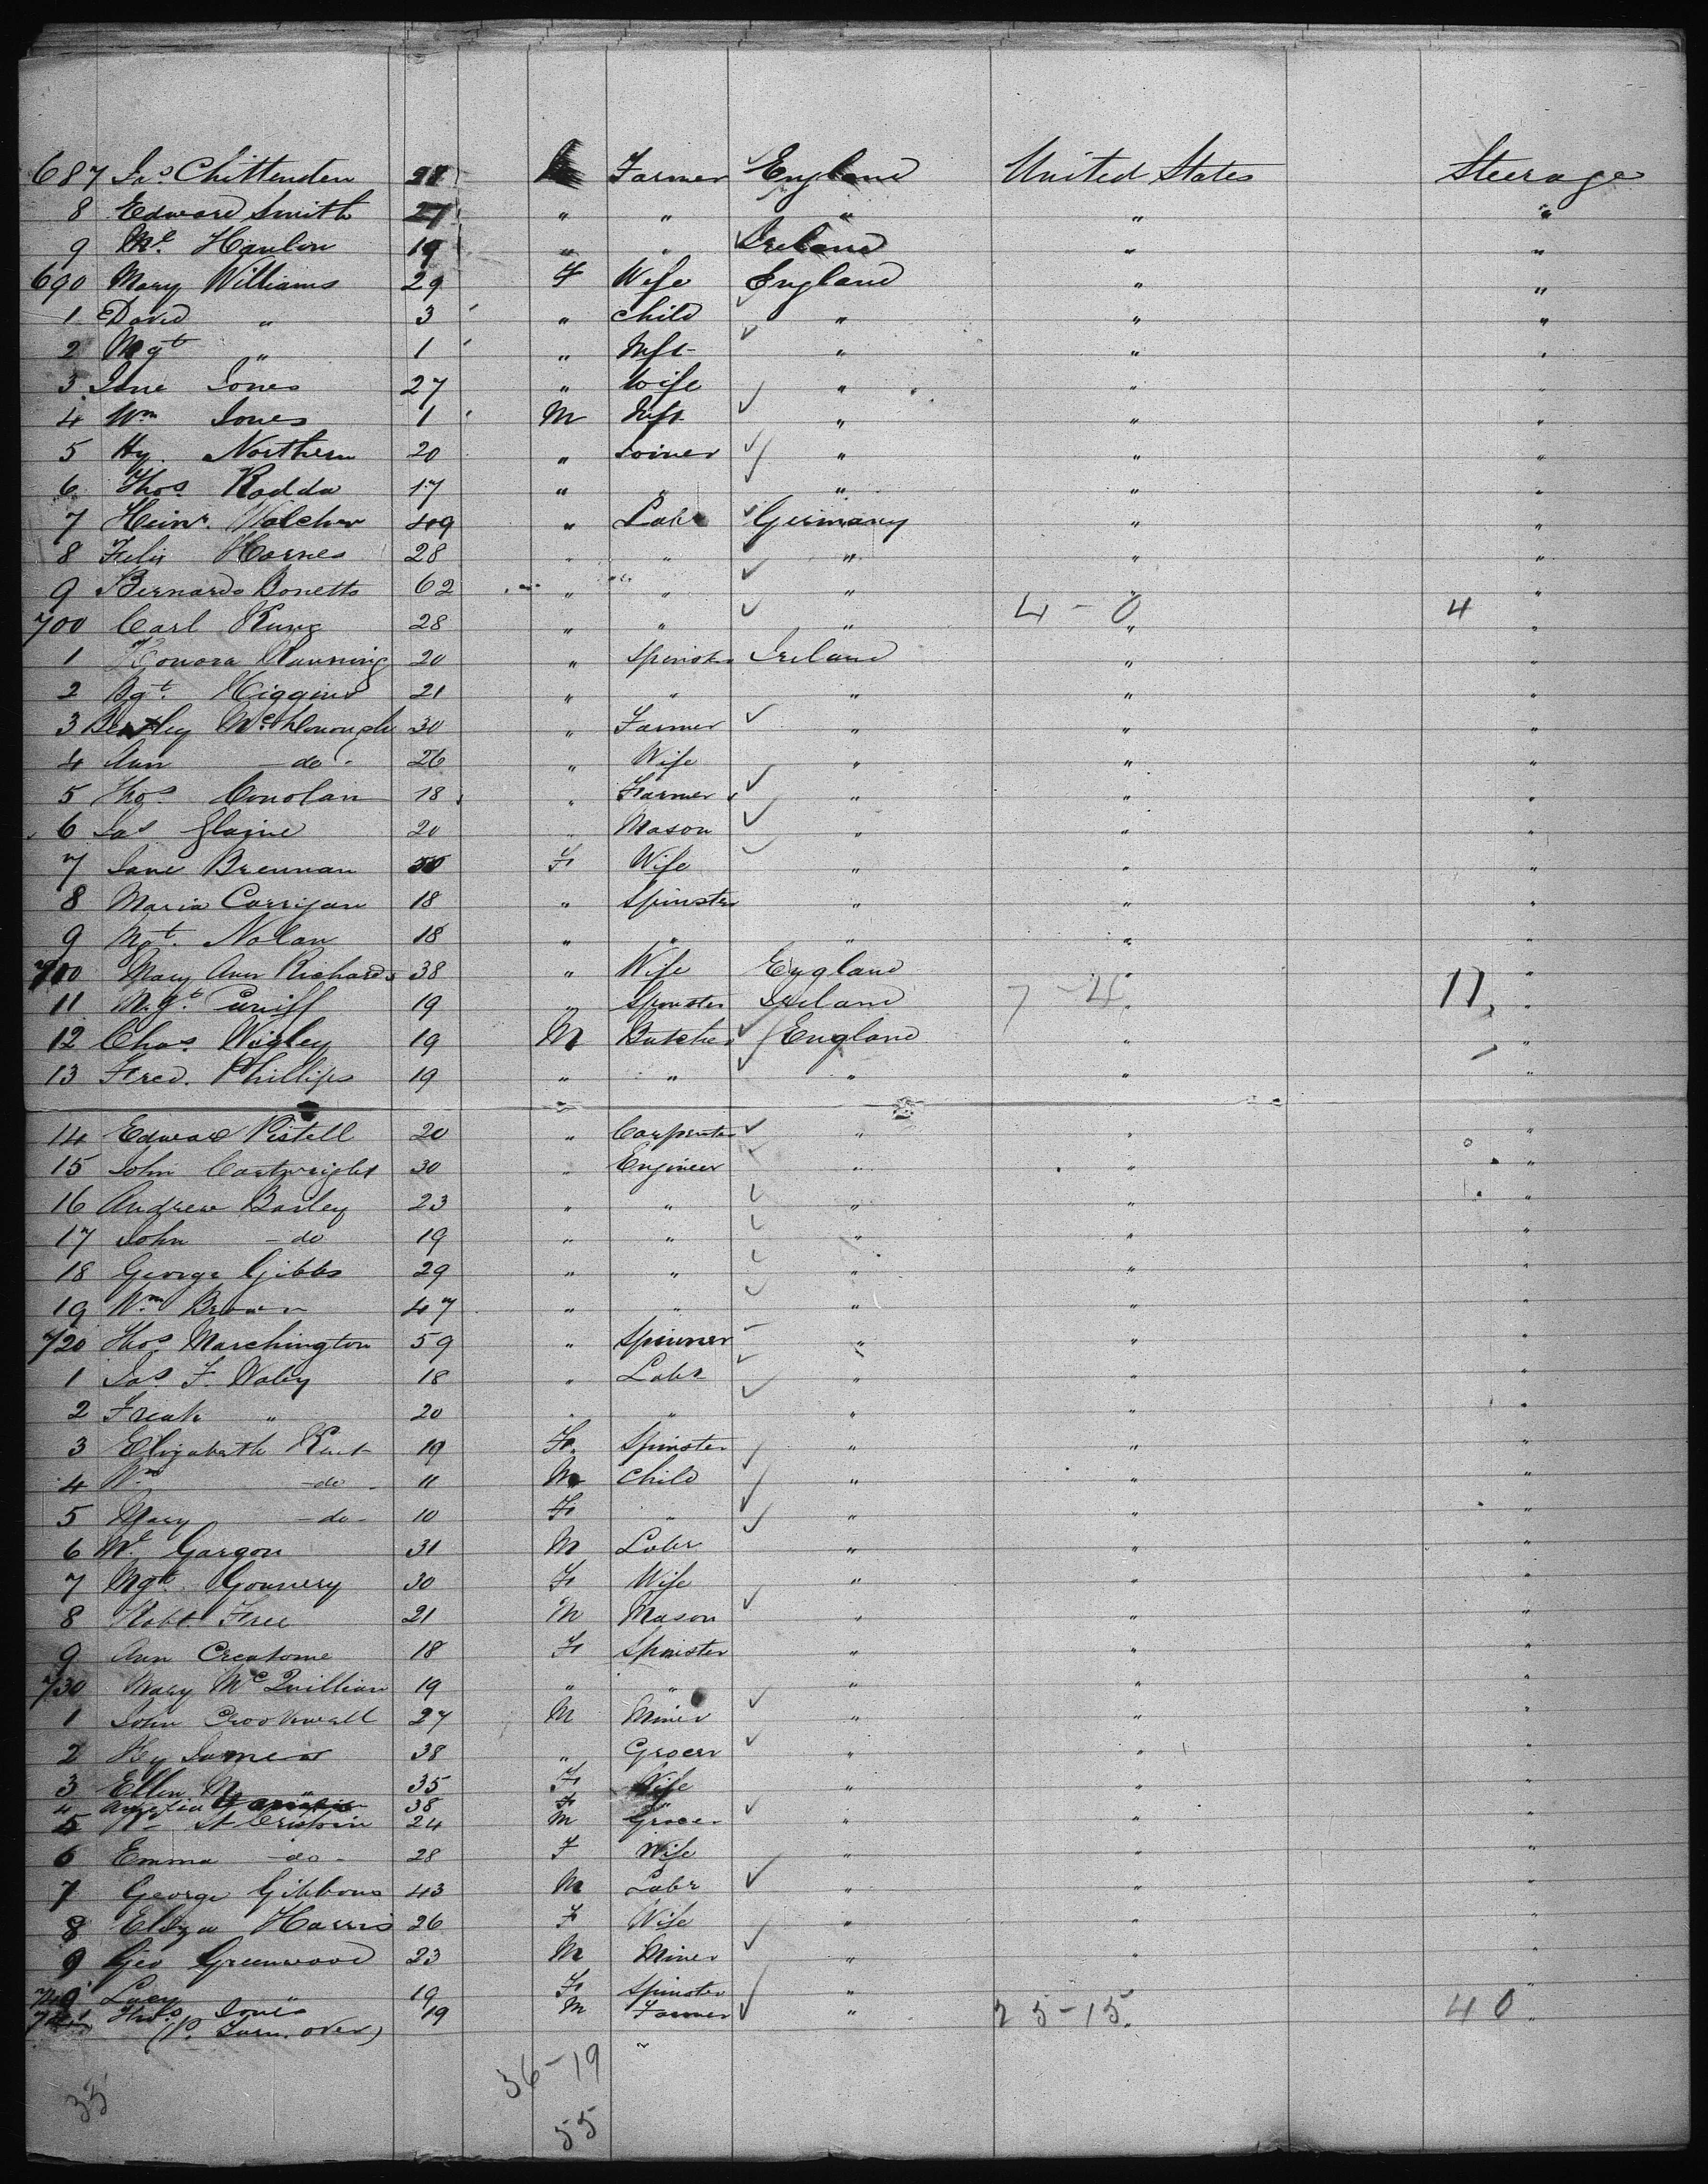 687 Jas. Chittenden 28 Farmer England United States Steerage
8 Edward Smith 27 " " " " "
9 Ml. Hanlon 19 " " Ireland " "
690 Mary Williams 29 F Wife England " "
1 David " 3 " Child " " "
2 Mgt " 1 " Inft " " "
3 Jane Jones 27 " Wife " " "
4 Wm Jones 1 M Inft " " "
5 Hy. Northern 20 " Joiner " " "
6 Thos. Rodda 17 " " " " "
7 Heinr. 409 " Labr Germany " "
8 Felix Hornes 28 " " " " "
9 Bernardo Bonetto 62 " " " " "
700 Carl Kung 28 " " " 4 - 0 " 4 "
1 Honora Manning 20 " Spinster Ireland " "
2 Bgt. Higgins 21 " " " " "
3 Bentley McDonough 30 " Farmer " " "
4 Ann - do - 26 " Wife " " "
5 Thos. Conolan 18 " Farmer " " "
6 Jas 20 " Mason " " "
7 Jane Brennan 50 F Wife " " "
8 Maria Corrigan 18 " Spinster " " "
9 Mgt. Nolan 18 " " " " "
710 Mary Ann Richards 38 " Wife England " "
11 Mgt. Cuniff 19 " Spinster Ireland 7 - 4 " 11 "
12 Chas. Wigley 19 M Butcher England " "
13 Fred. Phillips 19 " " " " "
14 Edward Pistell 20 " Carpenter " " "
15 John Cartwright 30 " Engineer " " "
16 Andrew Barley 23 " " " " "
17 John - do 19 " " " " "
18 George Gibbs 29 " " " " "
19 Wm Brown 47 " " " " "
720 Thos. Marchington 59 " Spinner " " "
1 Jas. F. Waby 18 " Labr " " "
2 Freak " 20 " " " " "
3 Elizabeth 19 F. Spinster " " "
4 Wm - do - 11 M Child " " "
5 Mary - do - 10 F " " " "
6 Ml. Gargon 31 M Labr " " "
7 Mgt. Gounery 30 F Wife " " "
8 Robt. Free 21 M Mason " " "
9 Ann Creatome 18 F Spinster " " "
730 Mary McQuillian 19 " " " " "
1 John Crookwall 27 M Miner " " "
2 Hy James 38 " Grocer " " "
3 Ellen M " 35 F Wife " " "
4 38 F " " "
5 St Crispin 24 M Grocer " " "
6 Emma - do - 28 F Wife " " "
7 George Gibbons 43 M Labr " " "
8 Eliza Harris 26 F Wife " " "
9 Geo Greenwood 23 M Miner " " "
740 Lucy " 19 F Spinster " "
741 Thos. Jones 19 M Farmer " 25-15 " 40 "
(P. Turn over)
36-19
35
55